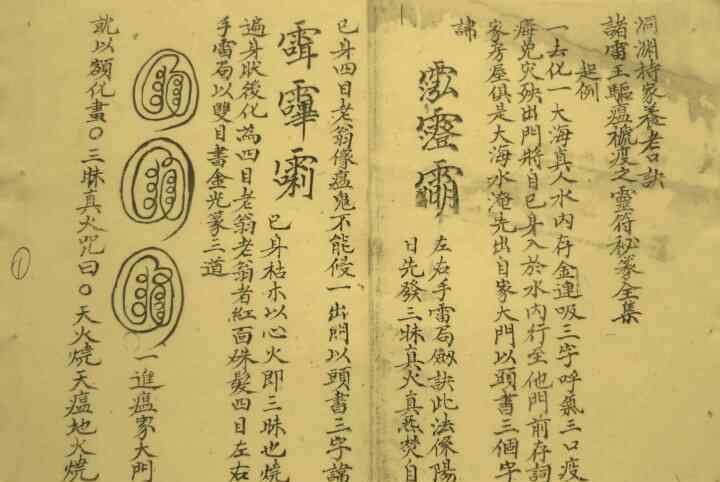 洞淵持家養老口訣
諸雷王驅瘟禠疫之靈符秘篆全集
起例
一去化一大海真人水內存金連吸三字呼氣三口疫
癘免灾殃出門將自己身入於水內行至他門前存詞
家房屋俱是大海水淹先出自家大門以頭書三個字
諱
左右手雷局劔訣此法保陽
日先發三昧真火真炁焚自
己身四目老翁像瘟鬼不能侵一出門以頭書三字諱
己身枯木以心火即三昧也燒
遍身狀後化為四目老翁老翁者紅面硃髮四目左右
手雷局以雙目書金光篆三道
一進瘟家大門
就以額化畫〇三昧真火咒曰〇天火燒天瘟地火燒
①